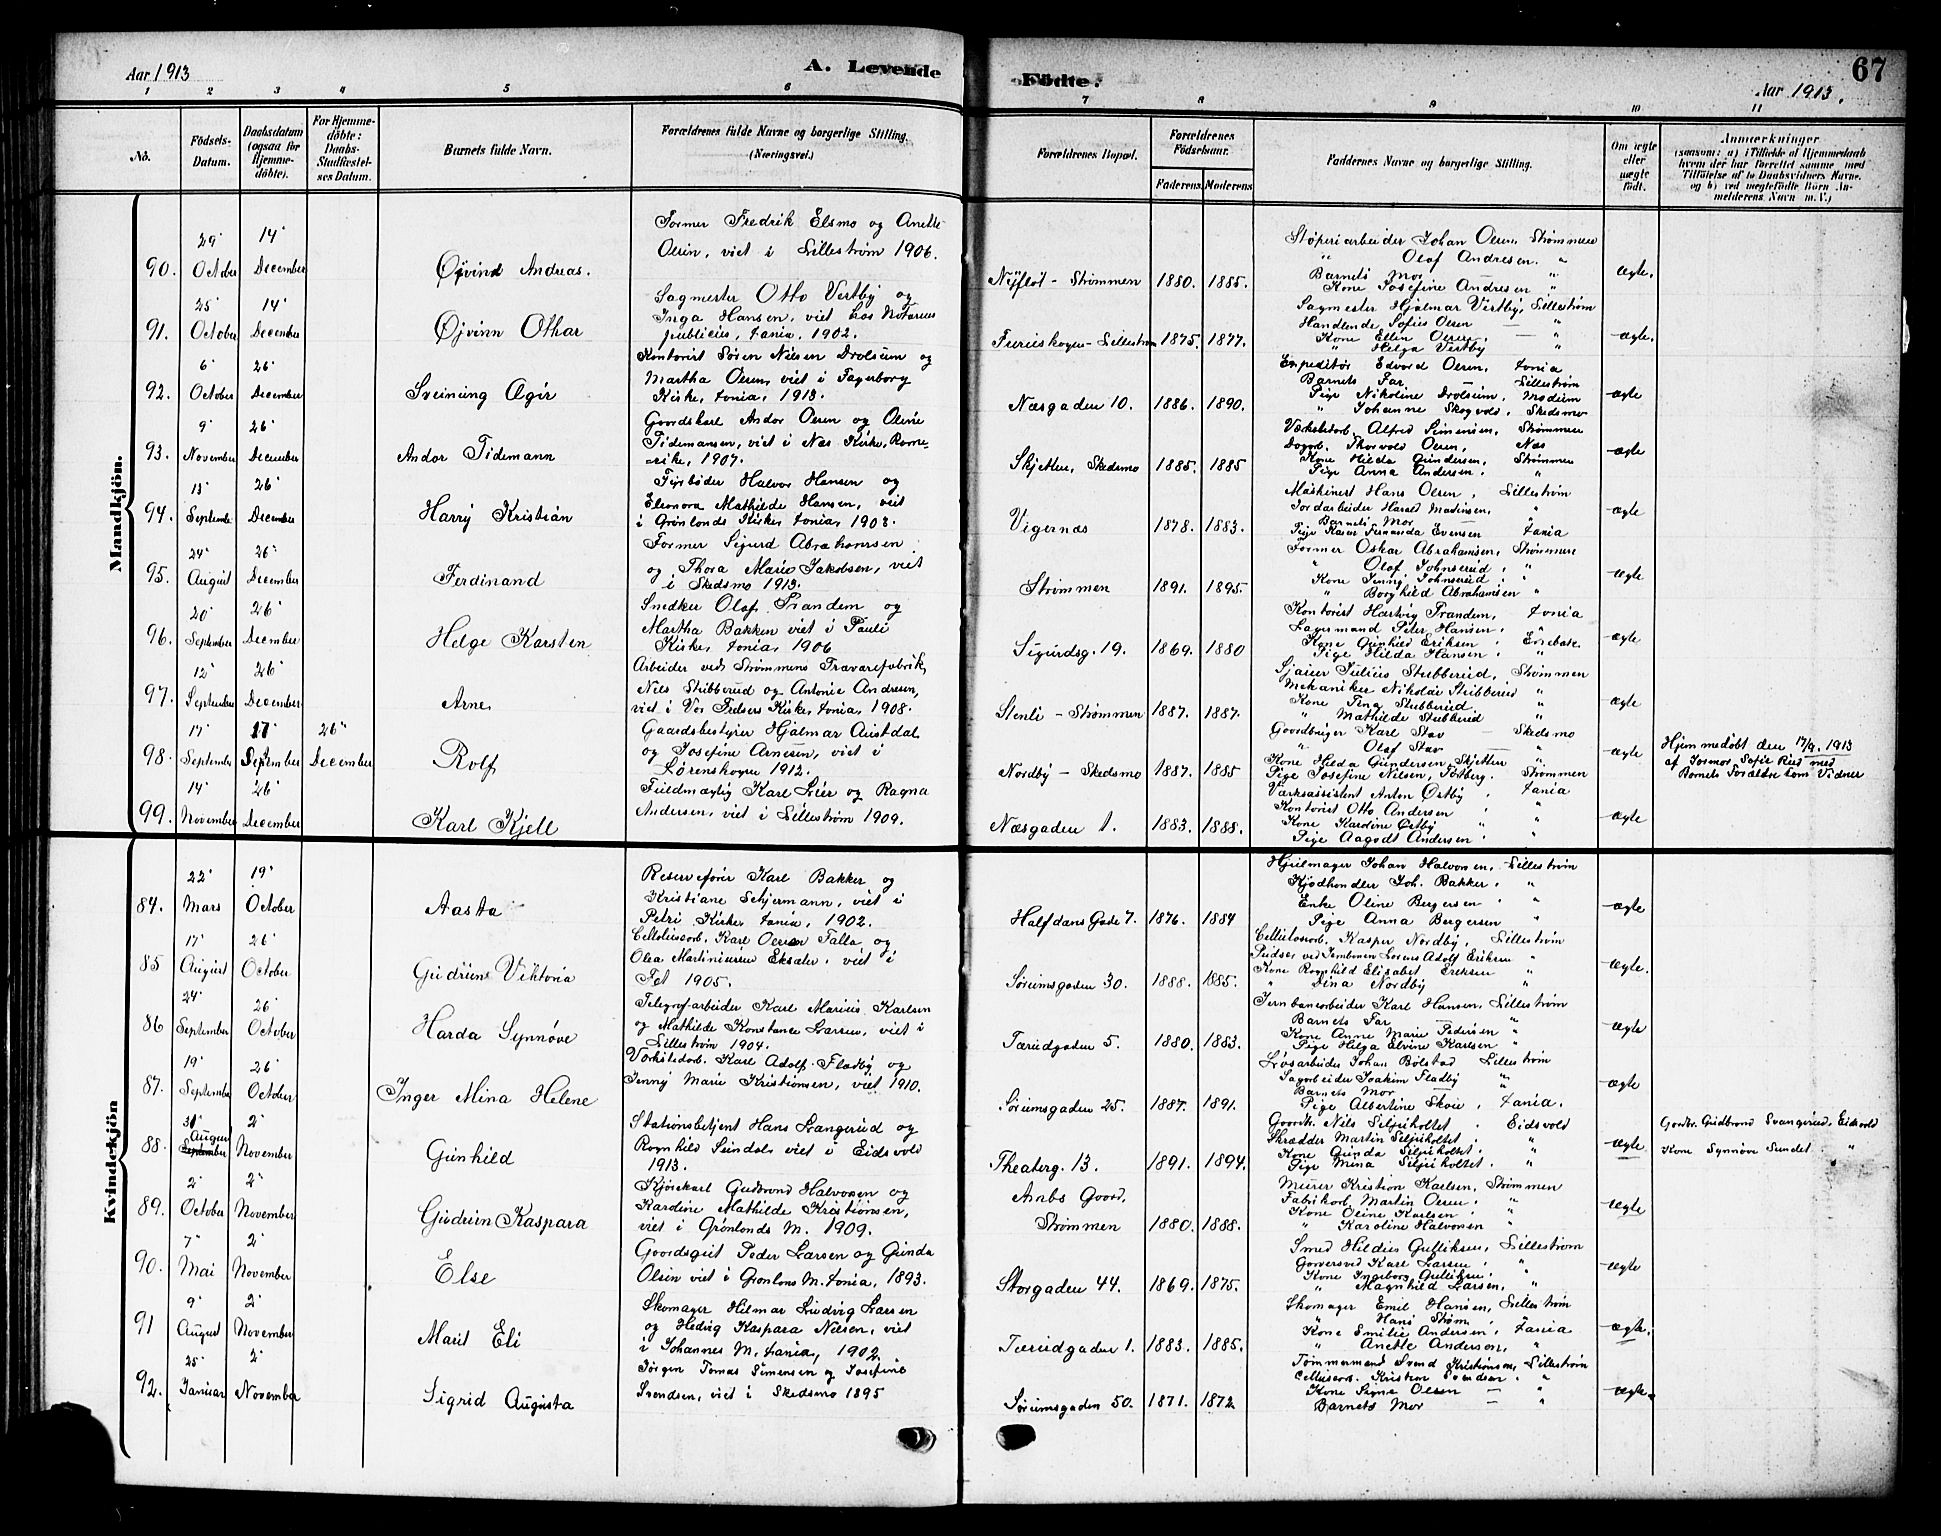 Aar 1913
A. Levende
Födte.
67
Aar 1913.
1 2 3 4 5 6 7 8 9 10 11
No.
Födsels-
Datum.
Daabsdatum
(ogsaa for
Hjemme-
döbte).
For Hjemme-
döbte:
Daabs-
Stadfæstel-
ses Datum.
Barnets fulde Navn.
Forældrenes fulde Navne og borgerlige Stilling.
(Næringsvei.)
Forældrenes Bopæl.
Forældrenes
Födselsaar.
Faderens. Moderens
Faddernes Navne og borgerlige Stilling.
Om ægte
eller
uægte
födt.
Anmærkninger
(saasom: a) i Tilfælde af Hjemmedaab
hvem der har forrettet samme med
Tilföielse af to Daabsvidners Navne.
og b) ved uægtefödte Börn An-
melderens Navn m. V.)
Mandkjön.
90. 29' October 14' December
Øjvind Andreas.
Former Fredrik Elsmo og Anette
Olsen, viet i Lillestrøm 1906.
Nyfløt - Strømmen 1880. 1885.
Støperiarbeider Johan Olsen, Strømmen
" Olaf Andresen. "
Barnets Mor — "
Kone Josefine Andresen "
ægte.
91. 25' October 14' December
Øjvinn Othar
Sagmester Otto Vestby og
Inga Hansen, viet hos Notarius
publicus, Xania, 1902.
Furuskogen - Lillestrøm 1875. 1877.
Sagmester Hjalmar Vestby, Lillestrøm
Handlende Sofus Olsen — "
Kone Ellen Olsen, — "
" Helga Vestby "
ægte.
92. 6' October 26' December
Sveinung Ægir
Kontorist Søren Nilsen Drolsum og
Martha Olsen, viet i Fagerborg
Kirke, Xania, 1913.
Næsgaden 10. 1886. 1890.
Expeditør Edvard Olsen, Xania
Barnets Far — Lillestrøm
Pige Nikoline Drolsum, Modum
" Johanne Skogvold, Skedsmo
ægte
93. 9' November 26' December
Andor Tidemann
Gaardskarl Andor Olsen og Oline
Tidemansen, viet i Næs Kirke, Rome-
rike, 1907.
Skjetten, Skedsmo 1885. 1885
Værkstedarb. Alfred Simensen, Strømmen
Dagarb. Thorvald Olsen, Næs
Kone Hilda Gundersen, Strømmen
Pige Anna Andersen. "
ægte
94. 13' September 26' December
Harry Kristian
Fyrbøder Halvor Hansen og
Eleonora Mathilde Hansen, viet
i Grønlands Kirke, Xania, 1903.
Vigernæs 1878. 1883.
Maskinist Hans Olsen, Lillestrøm
Jordarbeider Harald Madinsen, "
Barnets Mor — "
Pige Karen Fernanda Evensen Xania
ægte
95. 24' August 26' December
Ferdinand
Former Sigurd Abrahamsen
og Thora Marie Jakobsen, viet
i Skedsmo 1913.
Strømmen 1891. 1895.
Former Oskar Abrahamsen, Strømmen
" Olaf Johnsrud, "
Kone Jenny Johnsrud, "
" Borghild Abrahamsen "
ægte
96. 20' September 26' December
Helge Karsten
Snedker Olaf Trandem og
Martha Bakken viet i Pauli
Kirke, Xania, 1906
Sigurdsg. 19. 1869. 1880
Kontorist Hartvig Trandem, Xania
Lagermand Peter Hansen, "
Kone Gunhild Eriksen, Enebak.
Pige Hilda Hansen, "
ægte
97. 12' September 26' December
Arne
Arbeider ved Strømmens Travarefabrik,
Nils Stubberud og Antonie Andresen,
viet i Vor Frelsers Kirke, Xania, 1908.
Stenli - Strømmen 1887. 1887.
Sjauer Julius Stubberud, Strømmen
Mekaniker Nikolai Stubberud "
Kone Tina Stubberud "
" Mathilde Stubberud "
ægte
98. 17' September 17' September 26' December
Rolf
Gaardsbestyrer Hjalmar Austdal
og Josefine Arnesen, viet i
Lørenskogen 1912.
Nordby - Skedsmo 1887. 1885
Gaardbruger Karl Stav — Skedsmo
" Olaf Stav — "
Kone Hilda Gundersen, Skjetten "
Pige Josefine Nilsen, Fotberg. Strømmen
ægte
Hjemmedøbt den 17/9 1913
af Jormor Sofie Rud med
Barnets Forældre som Vidner
99. 14' November 26' December
Karl Kjell
Fuldmægtig Karl Lier og Ragna
Andersen, viet i Lillestrøm 1909.
Næsgaden 1. 1883. 1888.
Værksassistent Anton Østby, Xania
Kontorist Otto Andersen "
Kone Karoline Østby "
Pige Aagodt Andersen "
ægte
Kvindekjön
84. 22' Mars 19' October
Aasta
Reservefører Karl Bakker og
Kristiane Schjermann, viet i
Petri Kirke Xania, 1902.
Halfdans Gade 7. 1876. 1884
Hjulmager Johan Halvorsen, Lillestrøm
Kjødhandler Joh. Bakker, "
Enke Oline Bergersen "
Pige Anna Bergersen "
ægte
85 17' August 26' October
Gudrun Viktoria
Cellulosearb. Karl Olsen Falla og
Olea Martiniusen Eksæter, viet i
Fet 1905.
Sørumsgaden 30. 1888. 1885.
Cellulosarb. Kasper Nordby, Lillestrøm
Pudser ved Jernbanen Lorens Adolf Eriksen "
Kone Ragnhild Elisabet Eriksen "
" Lina Nordby "
ægte.
86 24' September 26' October
Harda Synnøve
Telegrafarbeider Karl Marius Karlsen
og Mathilde Konstance Larsen, viet i
Lillestrøm 1904.
Tærudgaden 5. 1880. 1883.
Jernbanearbeider Karl Hansen, Lillestrøm
Barnets Far — "
Kone Anne Marie Pedersen "
Pige Helga Elvine Karlsen "
ægte
87. 19' September 26' October
Inger Mina Helene
Værkstedarb. Karl Adolf Fladby og
Jenny Marie Kristiansen, viet 1910.
Sørumsgaden 25. 1887. 1891.
Løsarbeider Johan Bolstad Lillestrøm
Sagarbeider Joakim Fladby "
Barnets Mor — "
Pige Albertine Skoie, Xania.
ægte
88. 31' August September 2' November
Gunhild
Stationsbetjent Hans Svangerud og
Ragnhild Sundal, viet i Eidsvold
1913.
Theaterg. 13. 1891. 1894.
Gaardbr. Nils Seljuholtet, Eidsvold
Skrædder Martin Seljuholtet, "
Kone Gunda Seljuholtet, "
Pige Mina Seljuholtet. "
ægte
Gaardbr. Gudbrand Svangerud, Eidsvold
Kone Synnøve Sundet, "
89. 2' October 2' November
Gudrun Kaspara
Kjørekarl Gudbrand Halvorsen og
Karoline Mathilde Kristiansen,
viet i Grønlands M. 1909.
Anbs Gaard,
Strømmen 1880. 1888.
Murer Kristian Karlsen, Strømmen
Fabrikarb. Martin Olsen, "
Kone Oline Karlsen, "
" Karoline Halvorsen "
ægte
90. 7' Mai 2' November
Else
Gaardsgut Peder Larsen og Gunda
Olsen viet i Grønlans M. Xania, 1893.
Storgaden 44. 1869. 1875.
Smed Hildius Gulliksen, Lillestrøm
Garversvd Karl Larsen, "
Kone Ingeborg Gulliksen, "
" Magnhild Larsen, "
ægte
91 9' August 2' November
Marit Eli
Skomager Hilmar Ludvig Larsen
og Hedvig Kaspara Nilsen, viet
i Johannes M. Xania, 1902
Tærudgaden 1. 1883. 1885.
Skomager Emil Hansen, Lillestrøm
" Hans Strøm, "
Kone Emilie Andersen, Xania
" Anette Anderson, "
ægte.
92. 25' Januar 2' November
Sigrid Augusta
Jørgen Tomas Simensen og Josefine
Svendsen, viet i Skedsmo 1895
Sørumsgaden 50. 1871. 1872
Tømmermand Svend Kristiansen, Lillestrøm
Cellulosearb. Kristian Svendsen, "
Kone Signe Olsen — "
Barnets Mor — "
ægte.